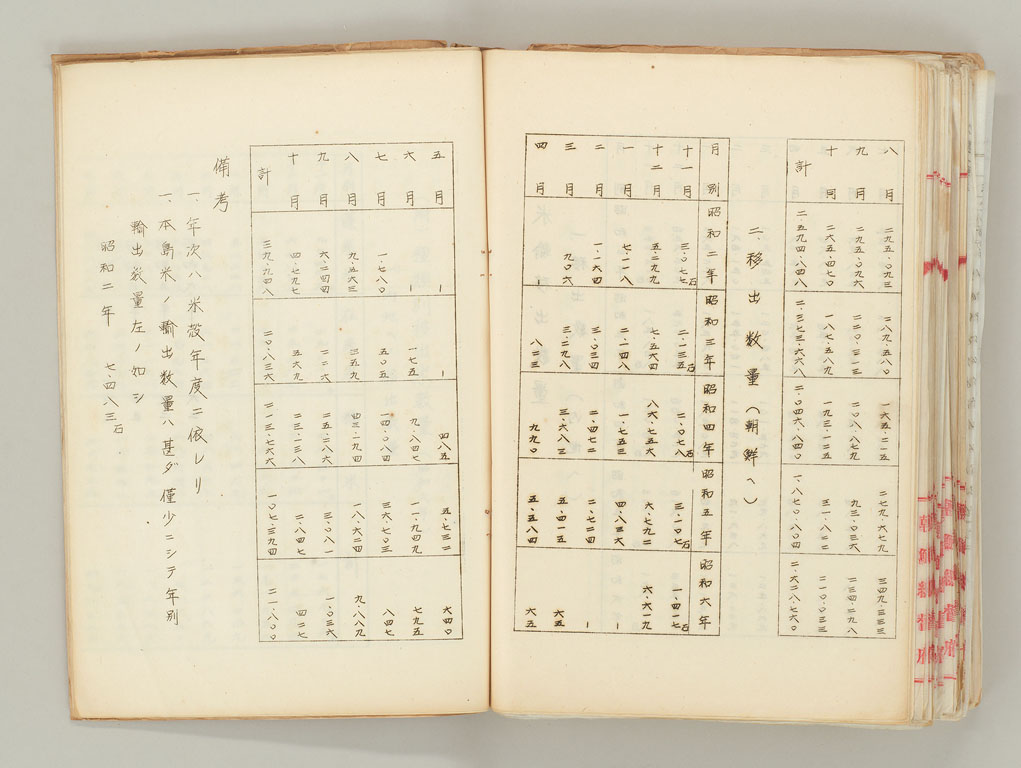 八月 二九五・〇九三 二八九・五八〇 一六五・二一五 二七九・六七九 三四九・三三三
九月 二九五・〇九六 二二〇・三一三 二〇八・八七九 九三・〇三六 二三四・二九八
十月 二六五・四七〇 一八七・五八九 一九三・一二三 三一・八二二 二一〇・〇三三
計 二・五九四・八四八 二・三七三・六六八 二・〇四六・八四〇 一・八七〇・八〇四 二・六二八・七六〇
二 移出数量(朝鮮ヘ)
月別 昭和二年 昭和三年 昭和四年 昭和五年 昭和六年
十一月 三・〇七七石 二・一三五石 二・〇七八石 三・一〇七石 一・四一七石
十二月 五・二九九 七・五六四 八六・七五六 六・七九二 六・六一九
一月 七・二一八 二・一四八 一・七五三 四・八三六 ｜
二月 一・一六四 三・〇三四 二・四七二 二・七二四 ｜
三月 九〇六 三・二九八 三・六八三 五・四一五 六五
四月 ｜ 八二三 九九〇 五・五八四 六五
五月 ｜ ｜ 四八五 五・七三二 六四〇
六月 ｜ 一七五 九・八四七 一一・九四九 七九五
七月 一・七八〇 五〇五 一四・〇八四 三六・七〇三 八四七
八月 九・五六三 三五九 四三・一九四 一八・六二四 九・八八九
九月 六・二四四 二二六 二五・二八六 三・〇八一 一・〇三六
十月 四・七九七 五六九 二三・一三八 二・八四七 四二七
計 三九・九四八 二〇・八三六 二一三・七六六 一〇七・三九四 二一・八〇〇
備考
一、年次ハ米穀年度ニ依レリ
一、本島米ノ輸出数量ハ甚ダ僅少ニシテ年別
輸出数量左ノ如シ
昭和二年 七・四八三石